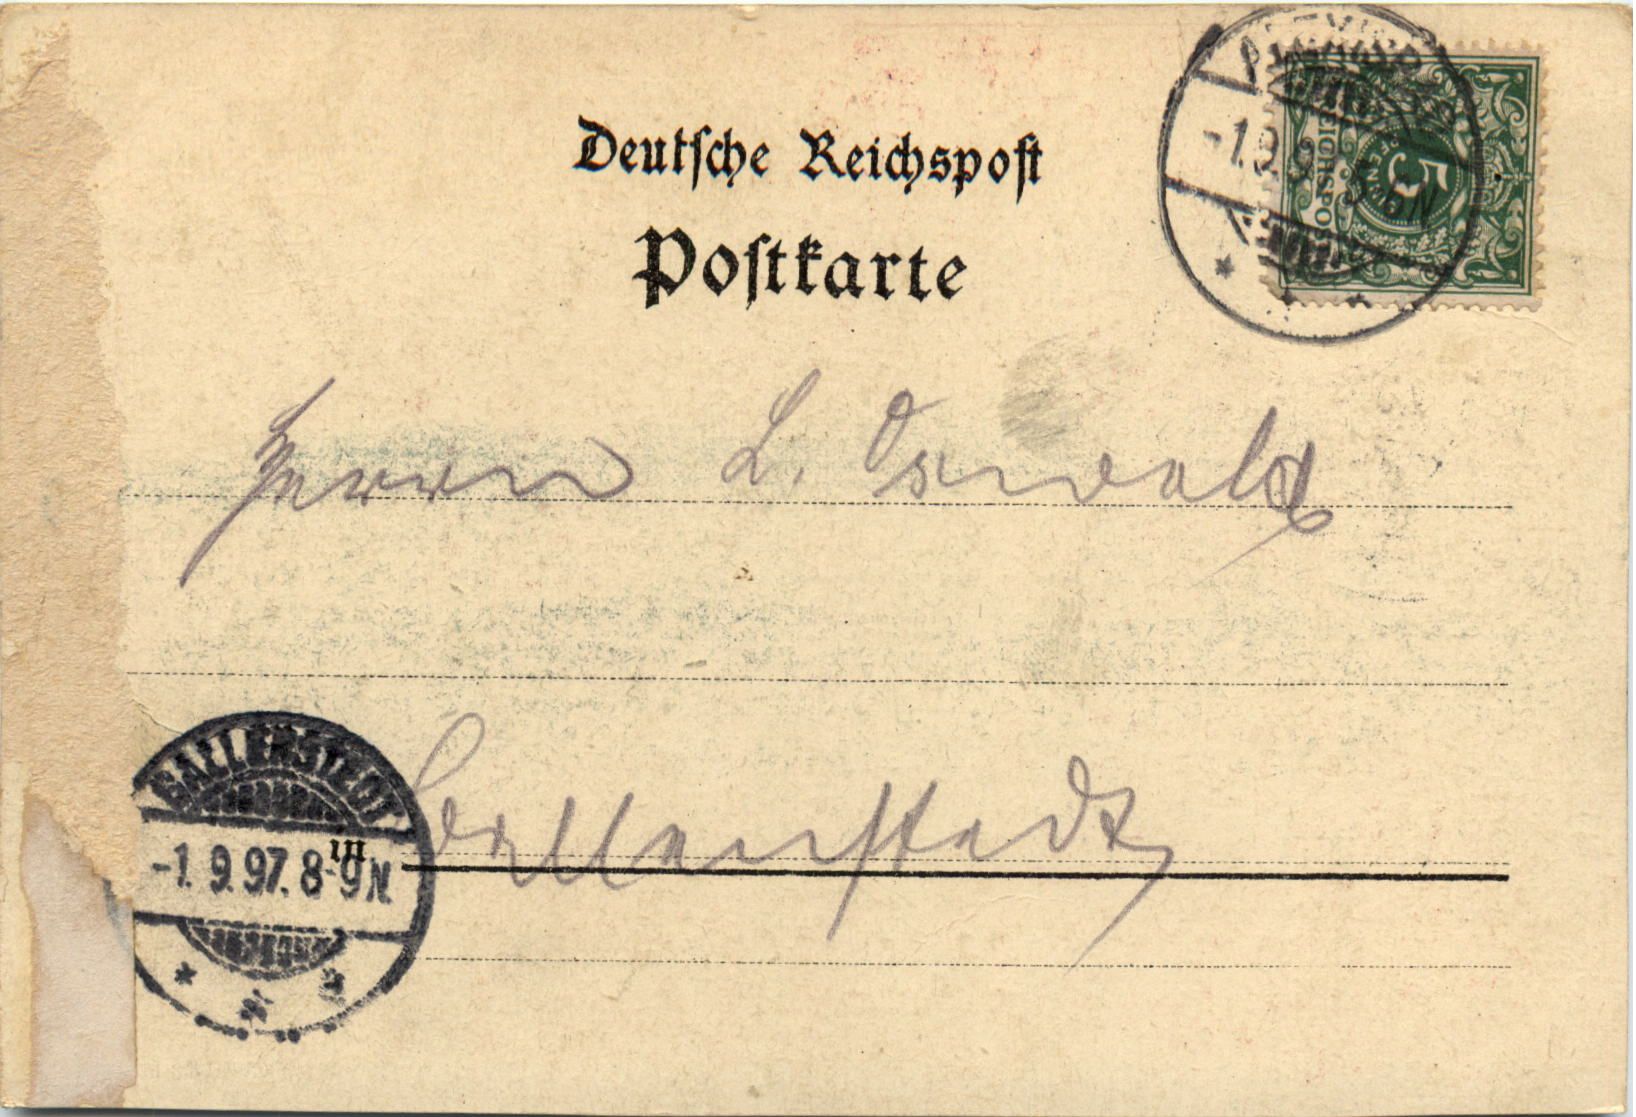 Deutsche Reichspost
Postkarte
REICHSPOST
5
PFENNIG
-1.9.97. 5-6N
* * *
Herrn L. Oswald
Ballenstedt
BALLENSTEDT
-1. 9. 97. 8-9N
III
* * *